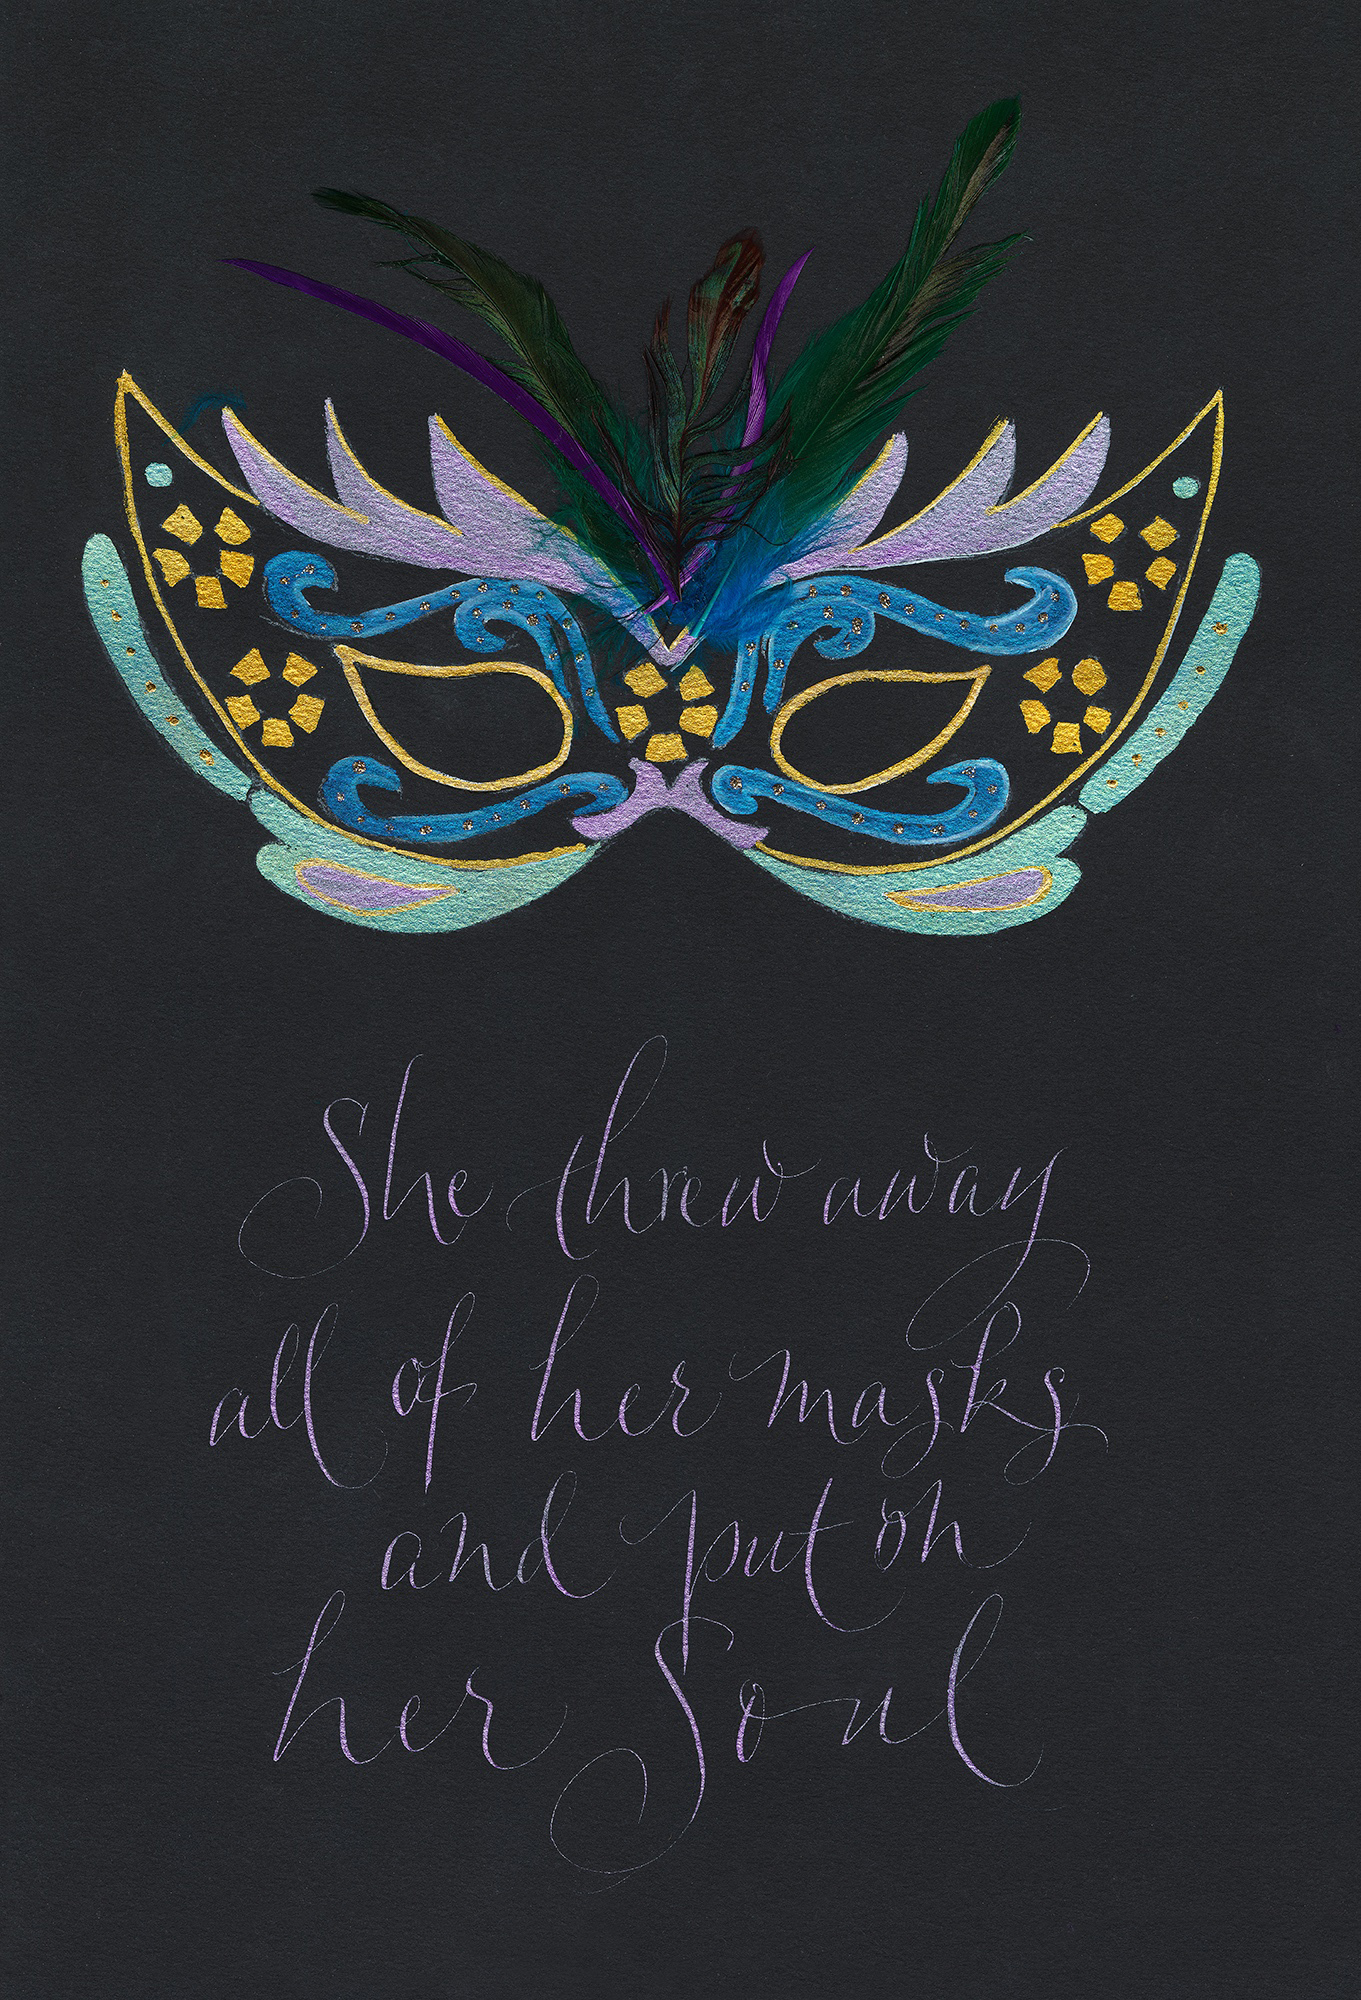 She threw away
all of her masks
and put on
her Soul